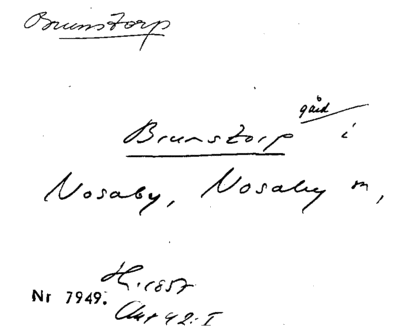 Brunstorp
gård
Brunstorp i
Nosaby, Nosaby m,
1857
Nr 7949.
42:I